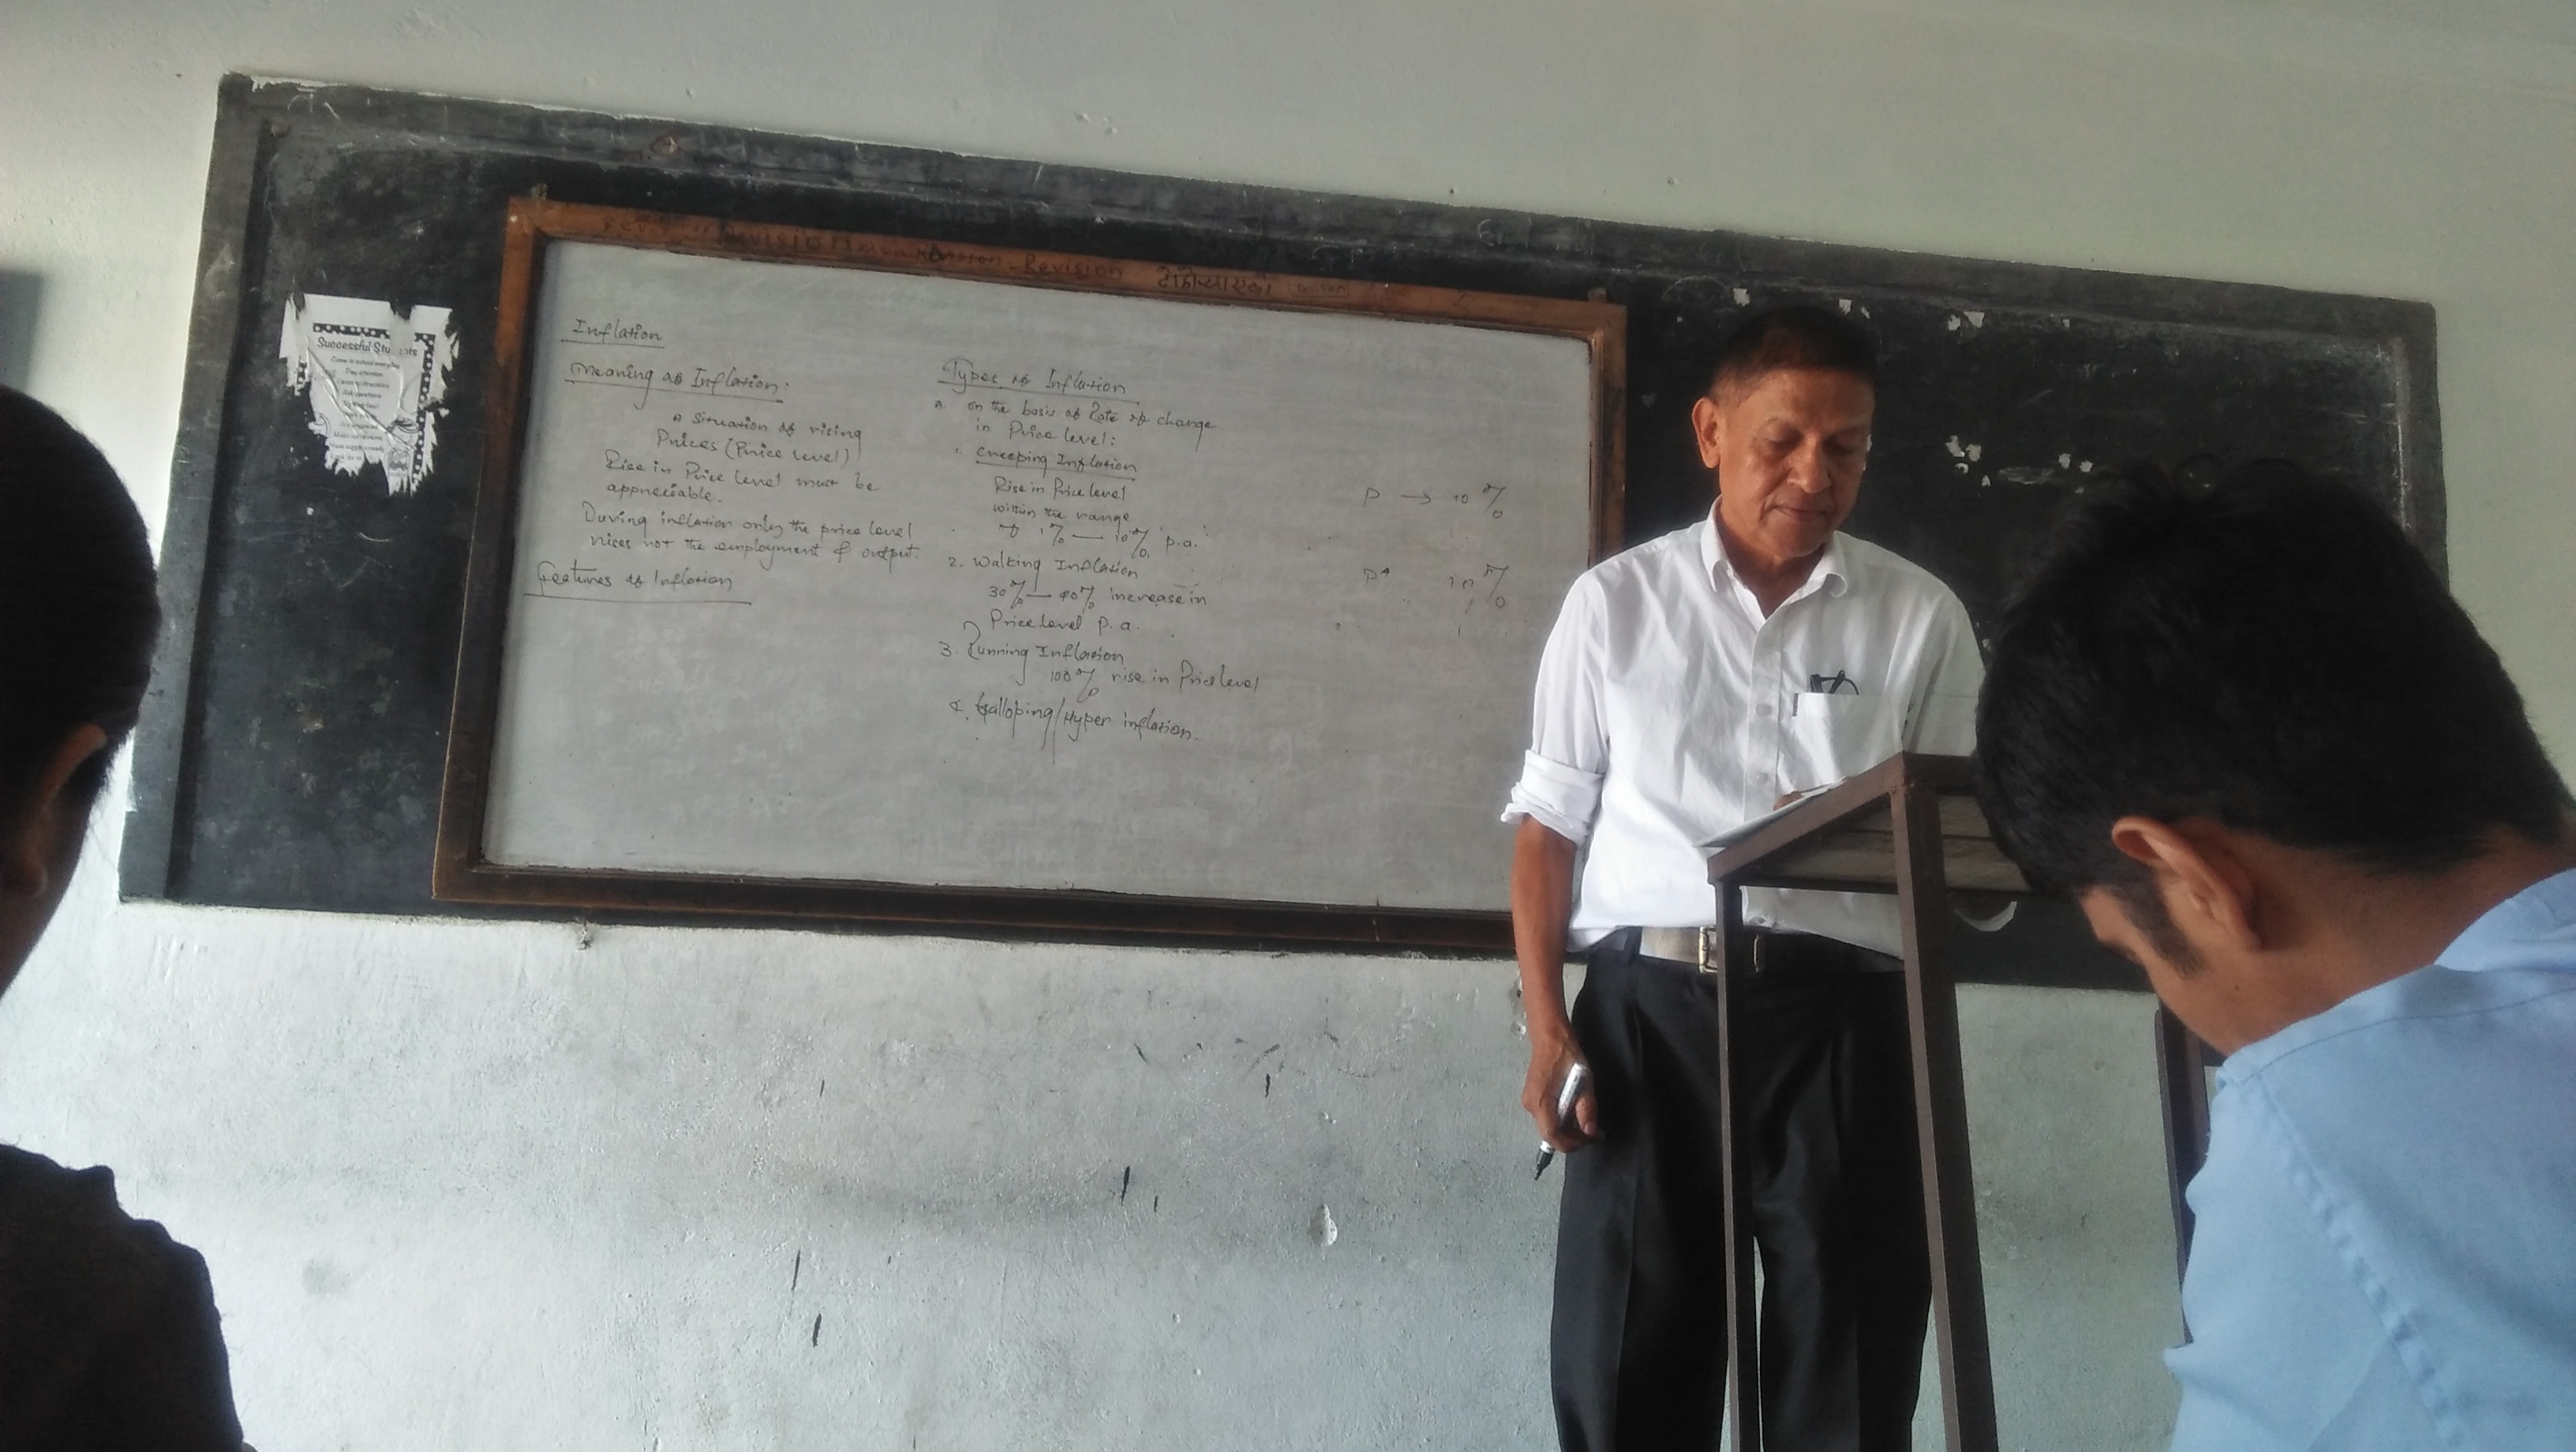 Revision Revision
Successful Stu nts
Come to school everyday
Pay attention
Listen to directions
Ask questions
Inflation
Meaning of Inflation:
A situation of rising
Prices (Price level)
Rise in Price level must be
appreciable.
During inflation only the price level
rises not the employment & output.
Features of Inflation
Types of Inflation
A. on the basis of Rate of change
in Price level:
1. Creeping Inflation
Rise in Price level
within the range
of 1% — 10% p.a.
2. Walking Inflation
30% — 40% increase in
Price level p.a.
3. Running Inflation
100% rise in Price level
4. Galloping/Hyper inflation.
P → 10 %
P 10 %